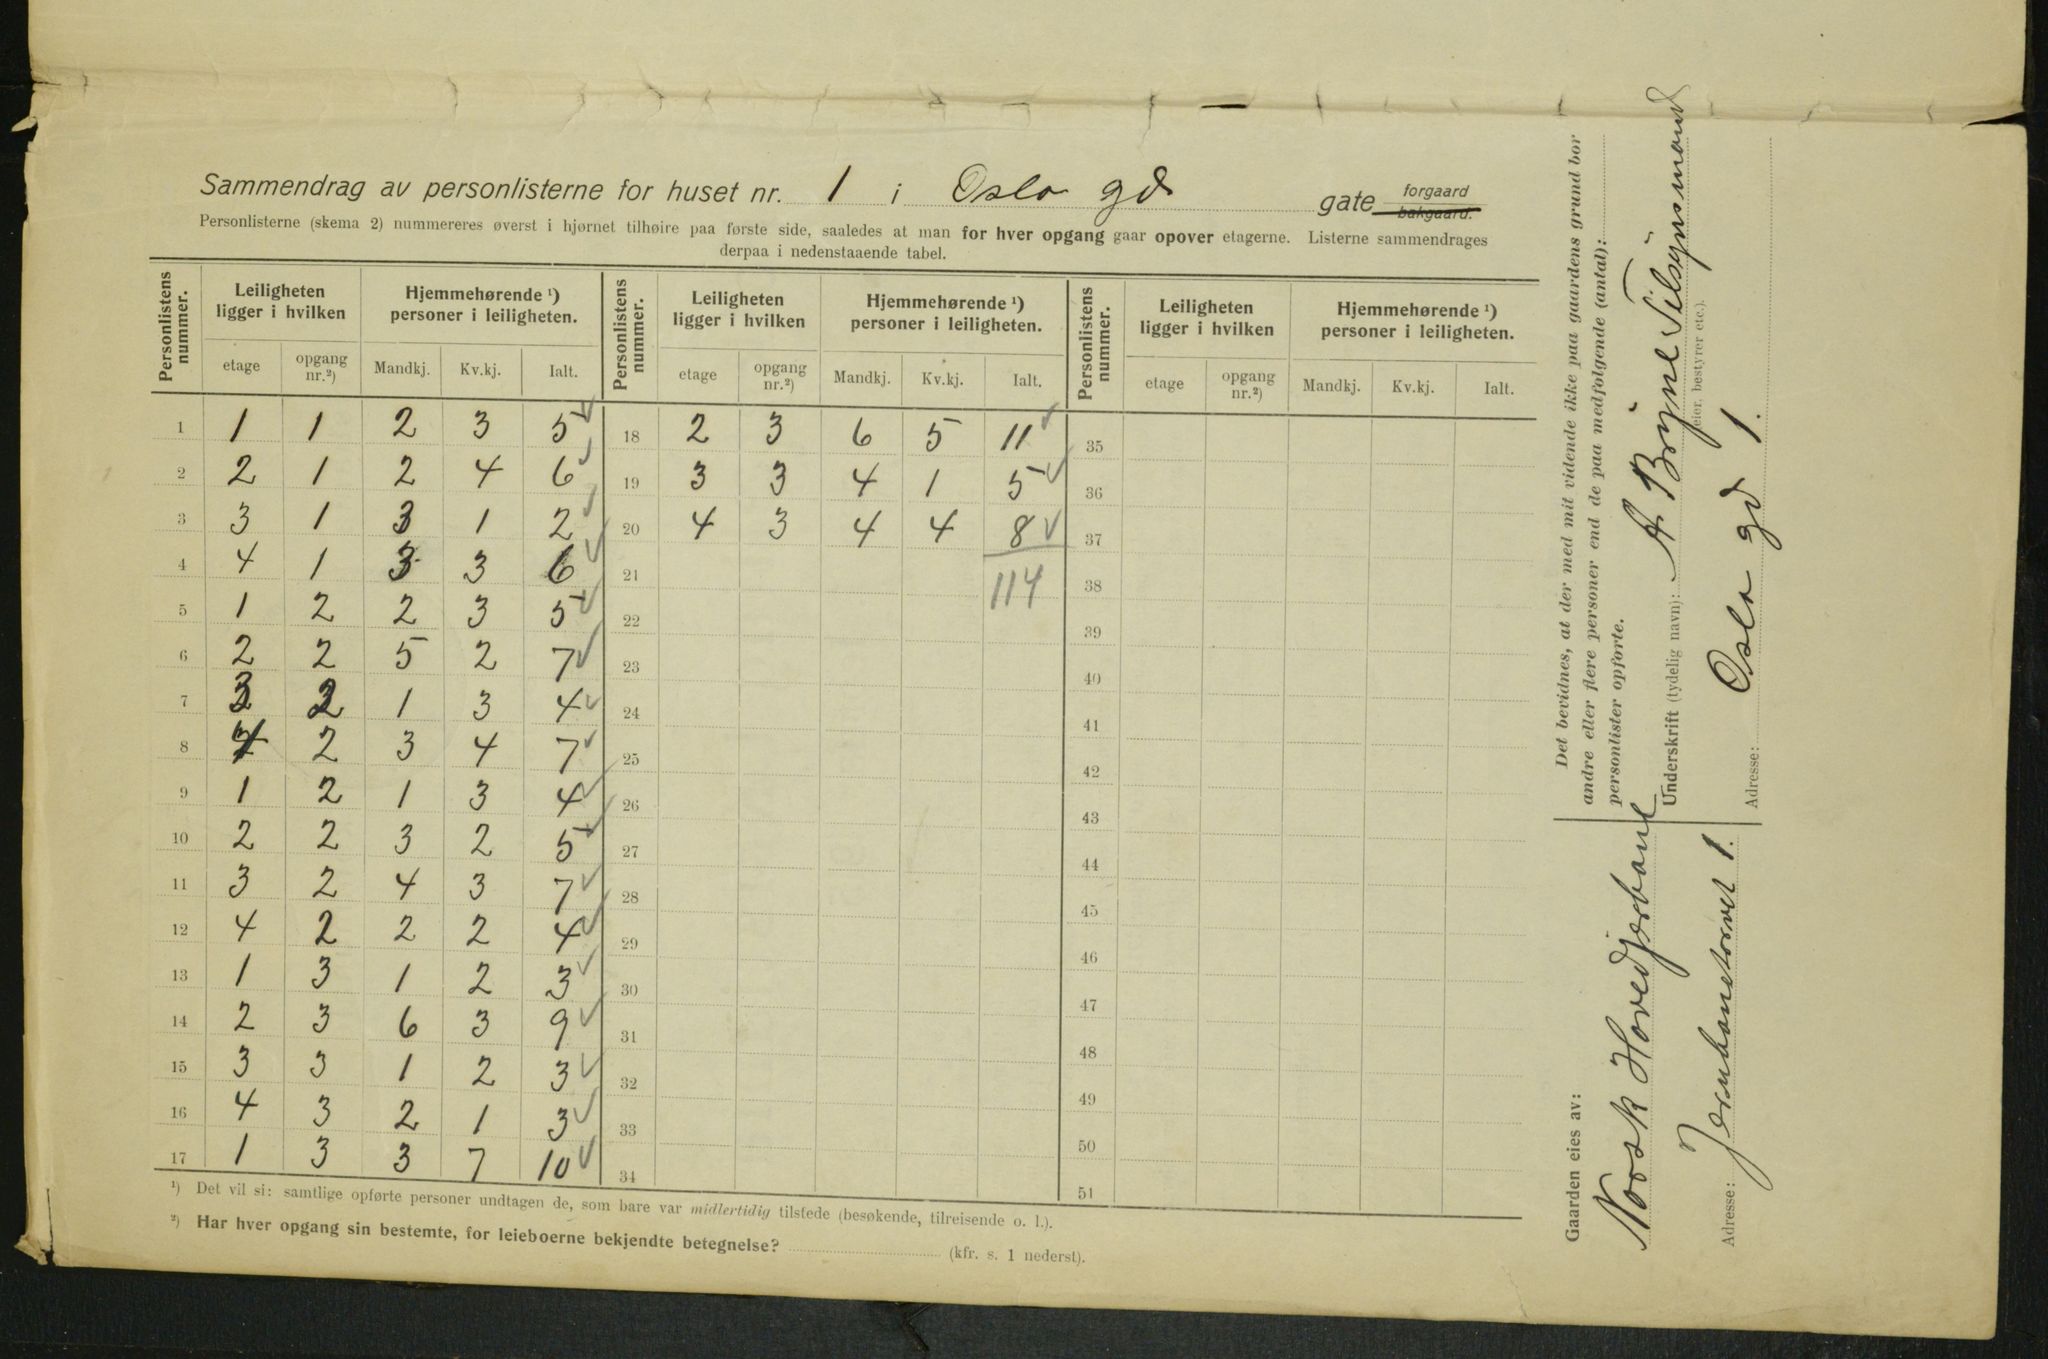 Sammendrag av personlisterne for huset nr. 1 i Oslo gd gate forgaard bakgaard.
Personlisterne (skema 2) nummereres øverst i hjørnet tilhøire paa første side, saaledes at man for hver opgang gaar opover etagerne. Listerne sammendrages
derpaa i nedenstaaende tabel.
Personlistens nummer. Leiligheten ligger i hvilken Hjemmehørende ¹) personer i leiligheten. Personlistens nummer. Leiligheten ligger i hvilken Hjemmehørende ¹) personer i leiligheten. Personlistens nummer. Leiligheten ligger i hvilken Hjemmehørende ¹) personer i leiligheten.
etage opgang nr.²) Mandkj. Kv.kj. Ialt. etage opgang nr.²) Mandkj. Kv.kj. Ialt. etage opgang nr.²) Mandkj. Kv.kj. Ialt.
1 1 1 2 3 5 18 2 3 6 5 11 35
2 2 1 2 4 6 19 3 3 4 1 5 36
3 3 1 1 2 20 4 3 4 4 8 37
4 4 1 3 3 6 21 114 38
5 1 2 2 3 5 22 39
6 2 2 5 2 7 23 40
7 3 2 1 3 4 24 41
8 4 2 3 4 7 25 42
9 1 2 1 3 4 26 43
10 2 2 3 2 5 27 44
11 3 2 4 3 7 28 45
12 4 2 2 2 4 29 46
13 1 3 1 2 3 30 47
14 2 3 6 3 9 31 48
15 3 3 1 2 3 32 49
16 4 3 2 1 3 33 50
17 1 3 3 7 10 34 51
¹) Det vil si: samtlige opførte personer undtagen de, som bare var midlertidig tilstede (besøkende, tilreisende o. l.).
²) Har hver opgang sin bestemte, for leieboerne bekjendte betegnelse? (kfr. s. 1 nederst).
Det bevidnes, at der med mit vidende ikke paa gaardens grund bor
andre eller flere personer end de paa medfølgende (antal):
personlister opførte.
Underskrift (tydelig navn): A. Brijne Tilsynsmand
(eier, bestyrer etc.).
Adresse: Oslo gd 1.
Gaarden eies av:
Norsk Hovedjernbane
Adresse: Jernbanetorvet 1.